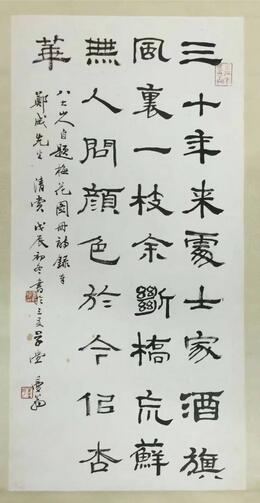 三十年来處士家酒旗
風裏一枝余斷橋荒蘚
無人問顏色於今佀杏
華
八大山人自題梅花圖冊詩錄奉
鄭威先生 清賞 戊辰初冬書於三友草堂 曼翁